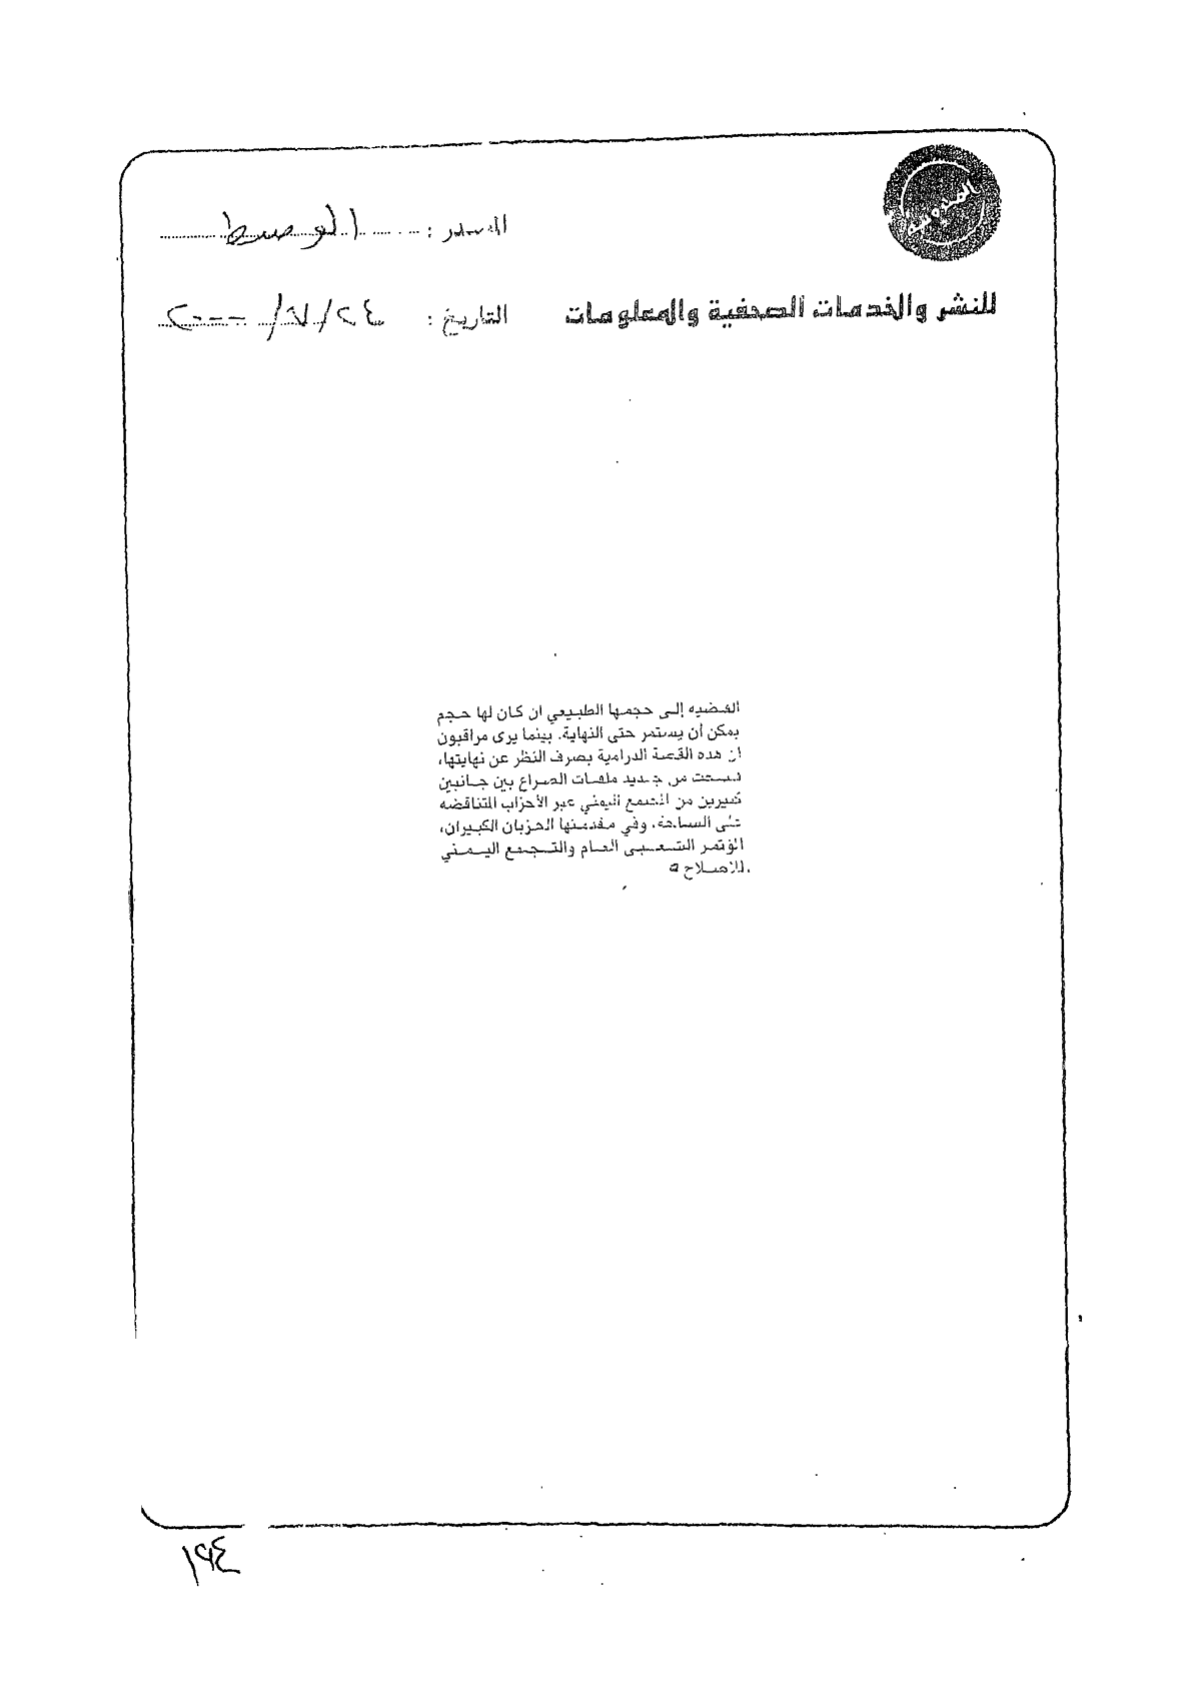 المصدر : الوسط
للنشر والخدمات الصحفية والمعلومات
التاريخ : ٢٤/٧/٢٠٠٠
القضيه إلى حجمها الطبيعي ان كان لها حجم
يمكن أن يستمر حتى النهاية. بينما يرى مراقبون
ان هذه القصة الدرامية بصرف النظر عن نهايتها،
فتحت من جديد ملفات الصراع بين جانبين
كبيرين من المجتمع اليمني عبر الأحزاب المتناقضه
على الساحة. وفي مقدمتها الحزبان الكبيران،
المؤتمر الشعبي العام والتجمع اليمني
للاصلاح